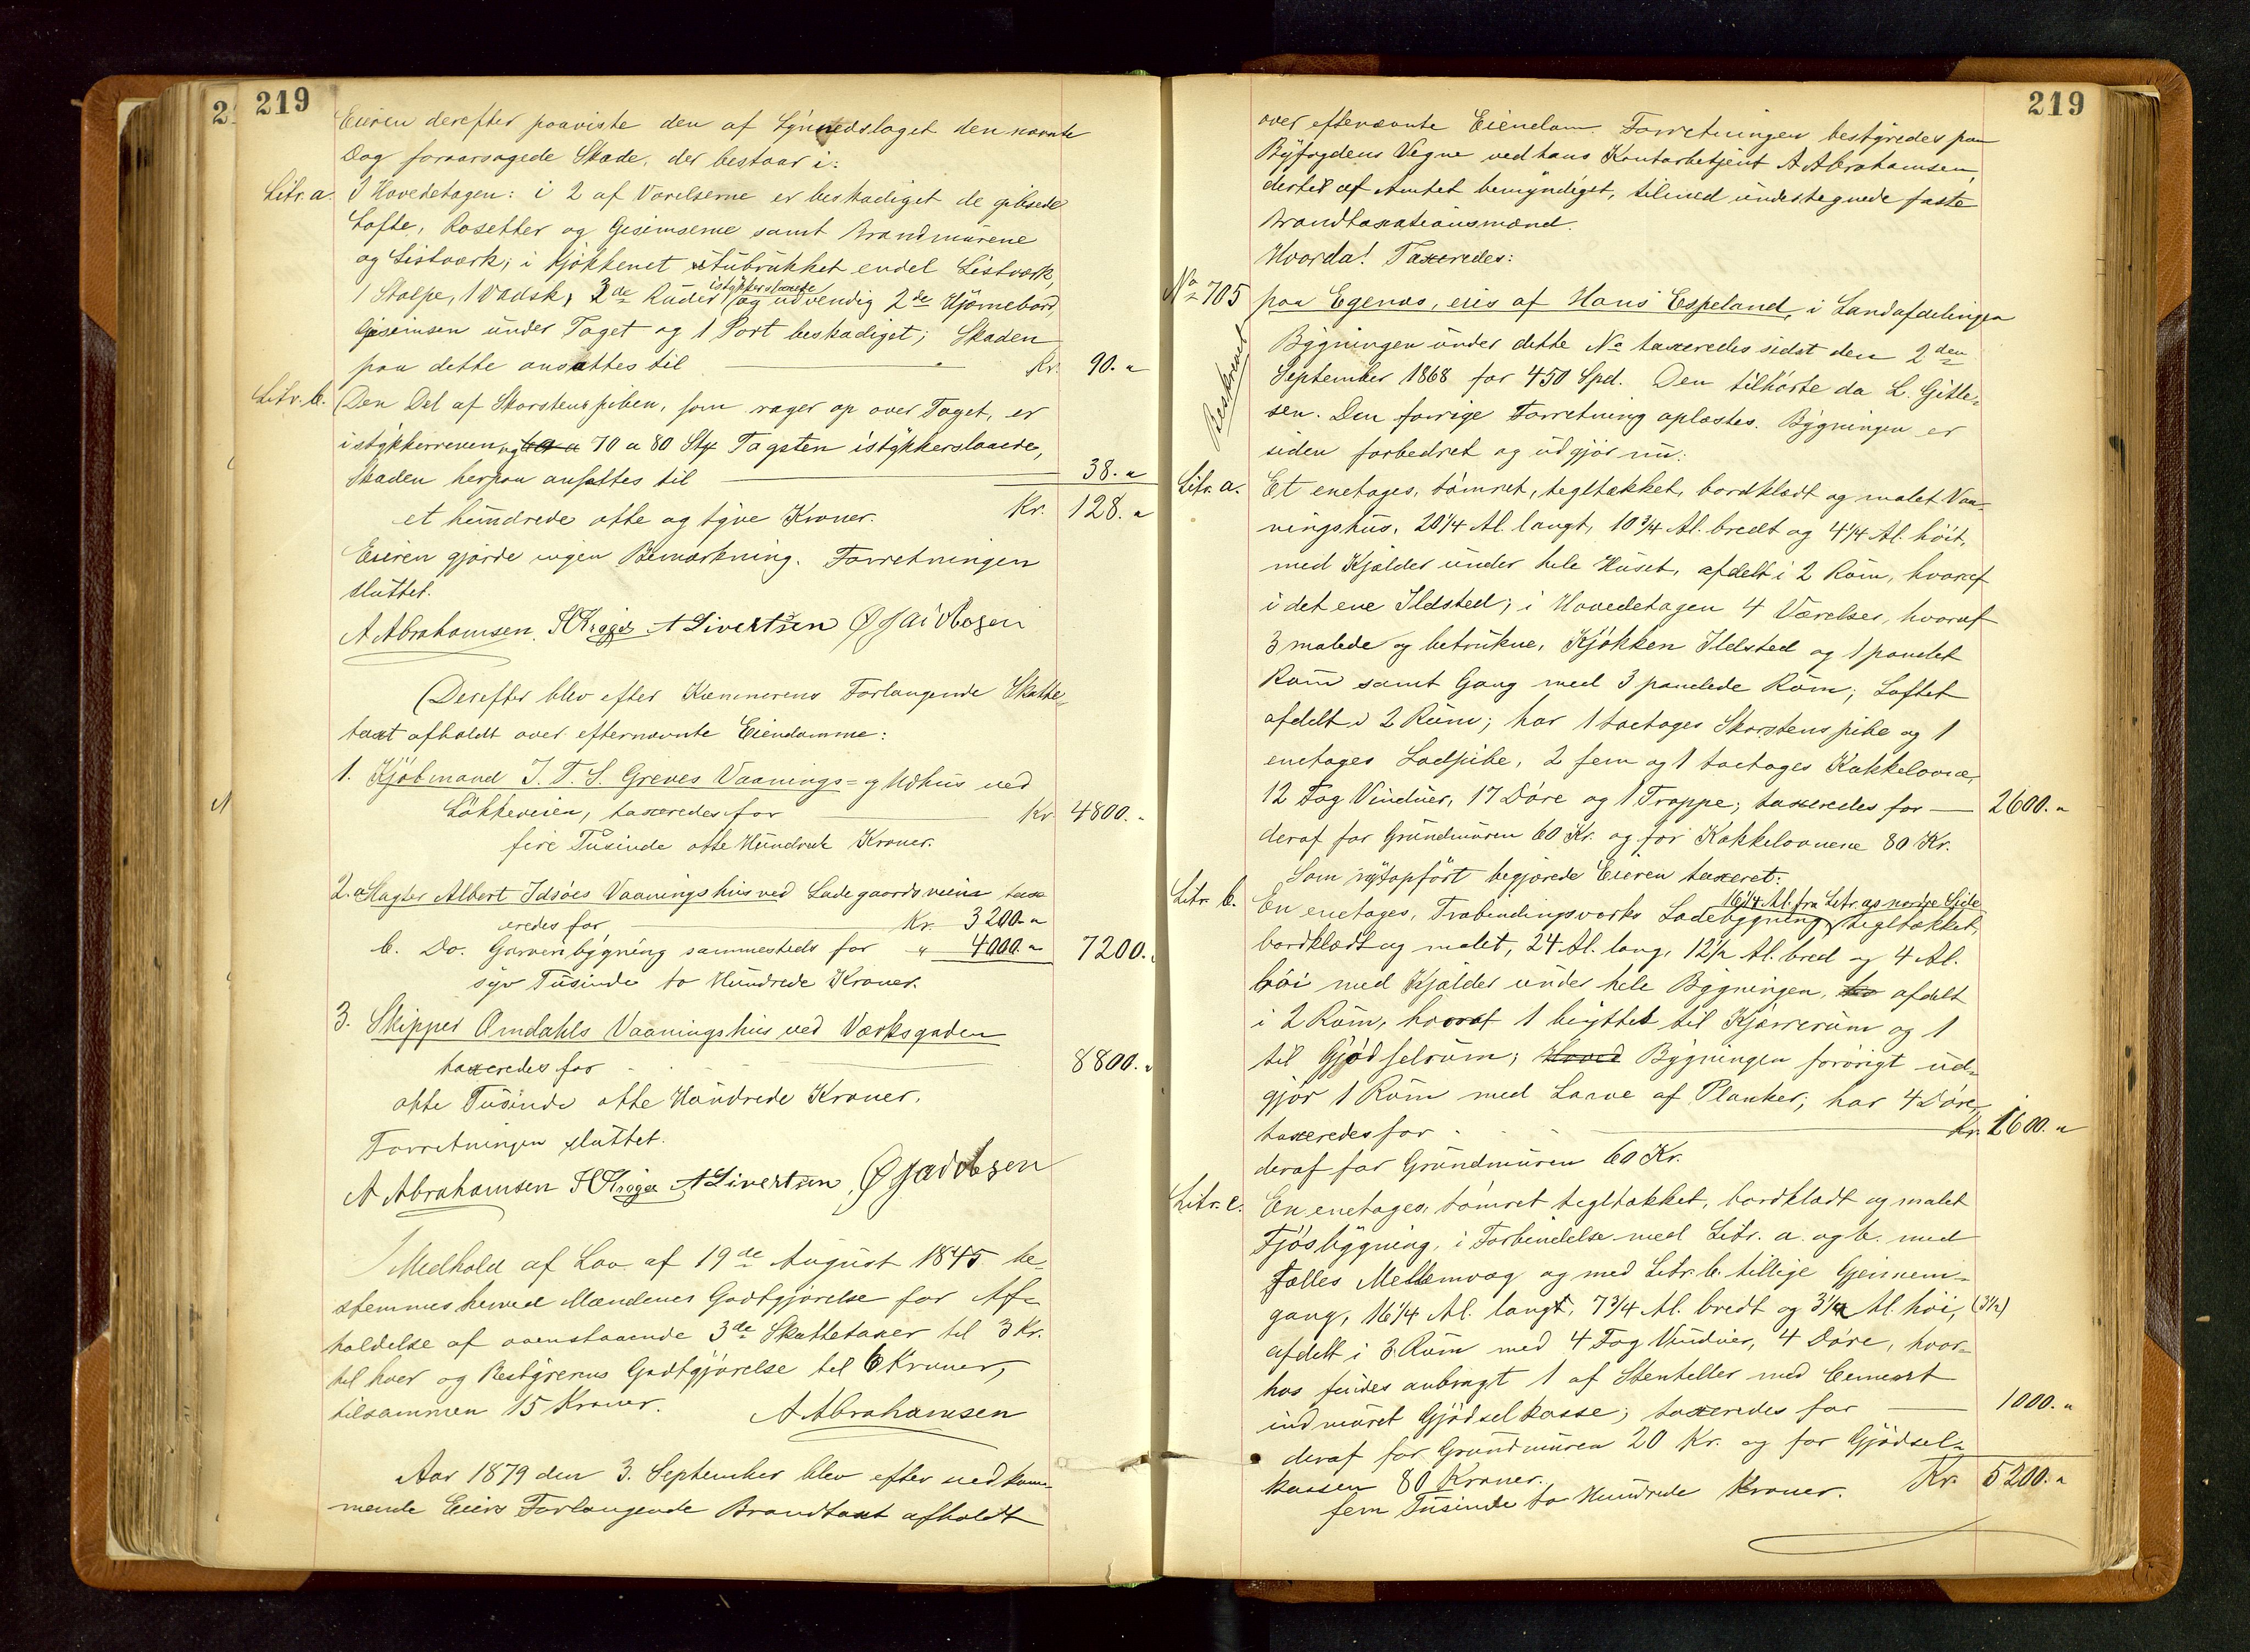 219
Eieren derefter paaviste den af Lynnedslaget den nævnte
Dag foraarsagede Skade, der bestaar i:
Litr. a. I Hovedetagen: i 2 af Værelserne er beskadiget de gibsede
Lofte, Rosetter og Gesimserne samt Brandmurene
og Listværk; i Kjøkkenet itubrukket endel Listværk,
1 Stolpe, 1 Vadsk, 3de Ruder istykkerslaaede og udvendig 2de Hjørnebord,
Gesimsen under Taget og 1 Port beskadiget; Skaden
paa dette ansættes til Kr. 90. "
Litr. b. Den Del af Skorstenspiben, som rager op over Taget, er
istykkerreven, og 70 a 80 Stk Tagsten istykkerslaaede,
Skaden herpaa ansættes til 38. "
et hundrede otte og tyve Kroner. Kr. 128. "
Eieren gjorde ingen Bemærkning. Forretningen
sluttet.
A Abrahamsen. H Krøger A Sivertsen Ø Jacobsen
Derefter blev efter Kæmnerens Forlangende Skatte-
taxt afholdt over efternævnte Eiendomme:
1. Kjøbmand J. T. S. Greves Vaanings- og Udhus ved
Løkkeveien, taxeredes for Kr. 4800. "
fire Tusinde otte Hundrede Kroner.
2. a Slagter Albert Idsøes Vaaningshus ved Ladegaardsveien tax-
eredes for Kr. 3200. "
b. Do. Garveribygning sammesteds for " 4000. " 7200. "
syv Tusinde to Hundrede Kroner.
3. Skipper Omdahls Vaaningshus ved Værksgaden
taxeredes for 8800. "
otte Tusinde otte Hundrede Kroner.
Forretningen sluttet.
A Abrahamsen H Krøger A Sivertsen, Ø Jacobsen
I Medhold af Lov af 19de August 1845 be-
stemmes herved Mændenes Godtgjørelse for Af-
holdelse af ovenstaaende 3de Skattetaxer til 3 Kr.
til hver og Bestyrerens Godtgjørelse til 6 Kroner,
tilsammen 15 Kroner. A Abrahamsen
Aar 1879 den 3. September blev efter vedkom-
mende Eiers Forlangende Brandtaxt afholdt
219
over efternævnte Eiendom. Forretningen bestyredes paa
Byfogdens Vegne ved hans Kontorbetjent A Abrahamsen,
dertil af Amtet bemyndiget, tilmed undertegnede faste
Brandtaxationsmænd.
Hvorda! Taxeredes:
No 705 paa Egenæs, eies af Hans Espeland, i Landafdelingen
Beskrevet
Bygningen under dette No taxeredes sidst den 2den
September 1868 for 450 Spd. Den tilhørte da L. Gitle-
sen. Den forrige Forretning oplæstes. Bygningen er
siden forbedret og udgjør nu:
Litr. a. Et enetages, tømret, tegltækket, bordklædt og malet Vaa-
ningshus, 20 1/4 Al. langt, 10 3/4 Al. bredt og 4 1/4 Al. høit,
med Kjælder under hele Huset, afdelt i 2 Rum, hvoraf
i det ene Ildsted; i Hovedetagen 4 Værelser, hvoraf
3 malede og betrukne, Kjøkken Ildsted og 1 panelet
Rum samt Gang med 3 panelede Rum; Loftet
afdelt i 2 Rum; har 1 toetages Skorstenspibe og 1
enetages Lodpibe, 2 fem og 1 toetages Kakkelovne,
12 Fag Vinduer, 17 Døre og 1 Trappe; taxeredes for 2600. "
deraf for Grundmuren 60 Kr. og for Kakkelovnene 80 Kr.
Som nytopført begjærede Eieren taxeret:
16 1/4 Al. fra Litr. as nordre Side
Litr. b. En enetages, Træbindingsværks Ladebygning, tegltækket,
bordklædt og malet, 24 Al. lang, 12 1/2 Al. bred og 4 Al.
høi med Kjælder under hele Bygningen, afdelt
i 2 Rum, hvoraf 1 benyttet til Kjærrerum og 1
til Gjødselrum; Hoved Bygningen forøvrigt ud-
gjør 1 Rum med Laave af Planker; har 4 Døre,
taxeredes for Kr. 1600. "
deraf for Grundmuren 60 Kr.
Litr. c. En enetages, tømret tegltækket, bordklædt og malet
Fjøsbygning, i Forbindelse med Litr. a. og b. med
fælles Mellemvæg og med Litr. b. tillige Gjennem-
gang, 16 1/4 Al. langt, 7 3/4 Al. bredt og 3 1/2 Al. høi, (3 1/2)
afdelt i 3 Rum med 4 Fag Vinduer, 4 Døre, hvor-
hos findes anbragt 1 af Stenheller med Cement
indmuret Gjødselkasse; taxeredes for 1000. "
deraf for Grundmuren 20 Kr. og for Gjødsel-
kassen 80 Kroner.
fem Tusinde to Hundrede Kroner. Kr. 5200. "